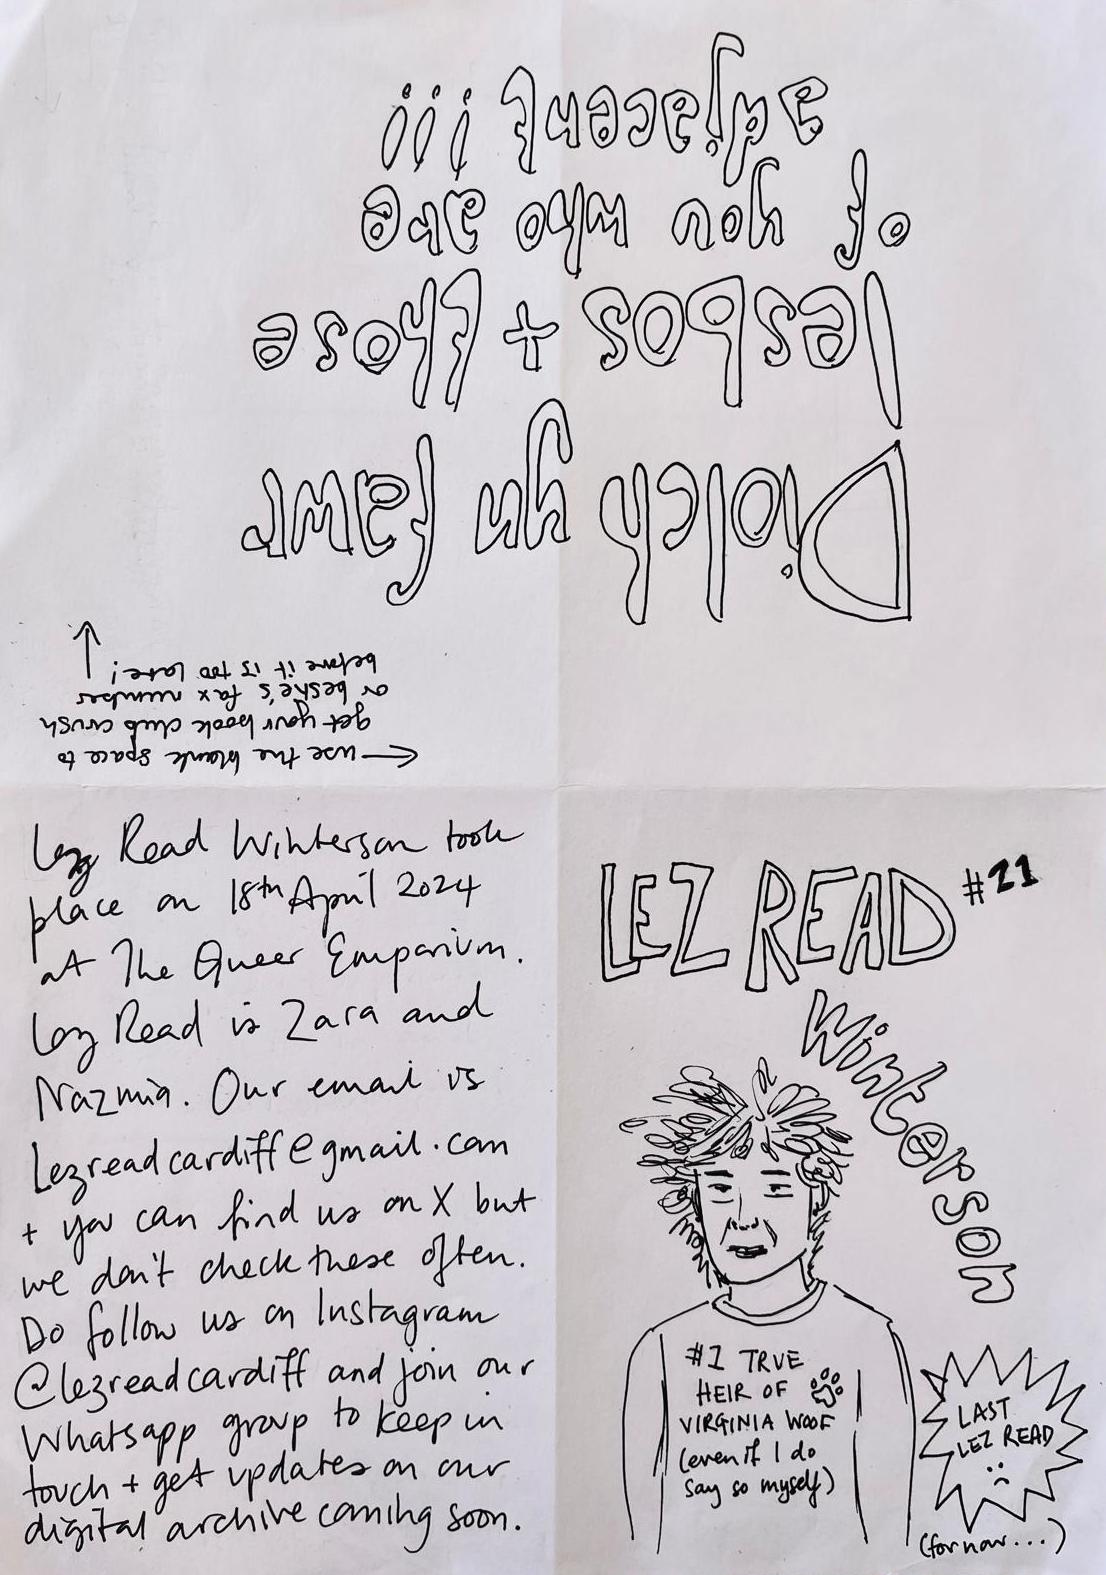 Diolch yn fawr
lesbos + those
of you who are
adjacent!!!
← use the blank space to
get your book club crush
or beshe's fax number
before it is too late!
Lez Read Winterson took
place on 18th April 2024
at The Queer Emporium.
Lez Read is Zara and
Nazmia. Our email is
Lezreadcardiff@gmail.com
+ you can find us on X but
we don't check these often.
Do follow us on Instagram
@lezreadcardiff and join our
Whatsapp group to keep in
touch + get updates on our
digital archive coming soon.
LEZ READ #21
Winterson
#1 TRUE
HEIR OF
VIRGINIA WOOF
(even if I do
say so myself)
LAST
LEZ READ
:(
(for now...)